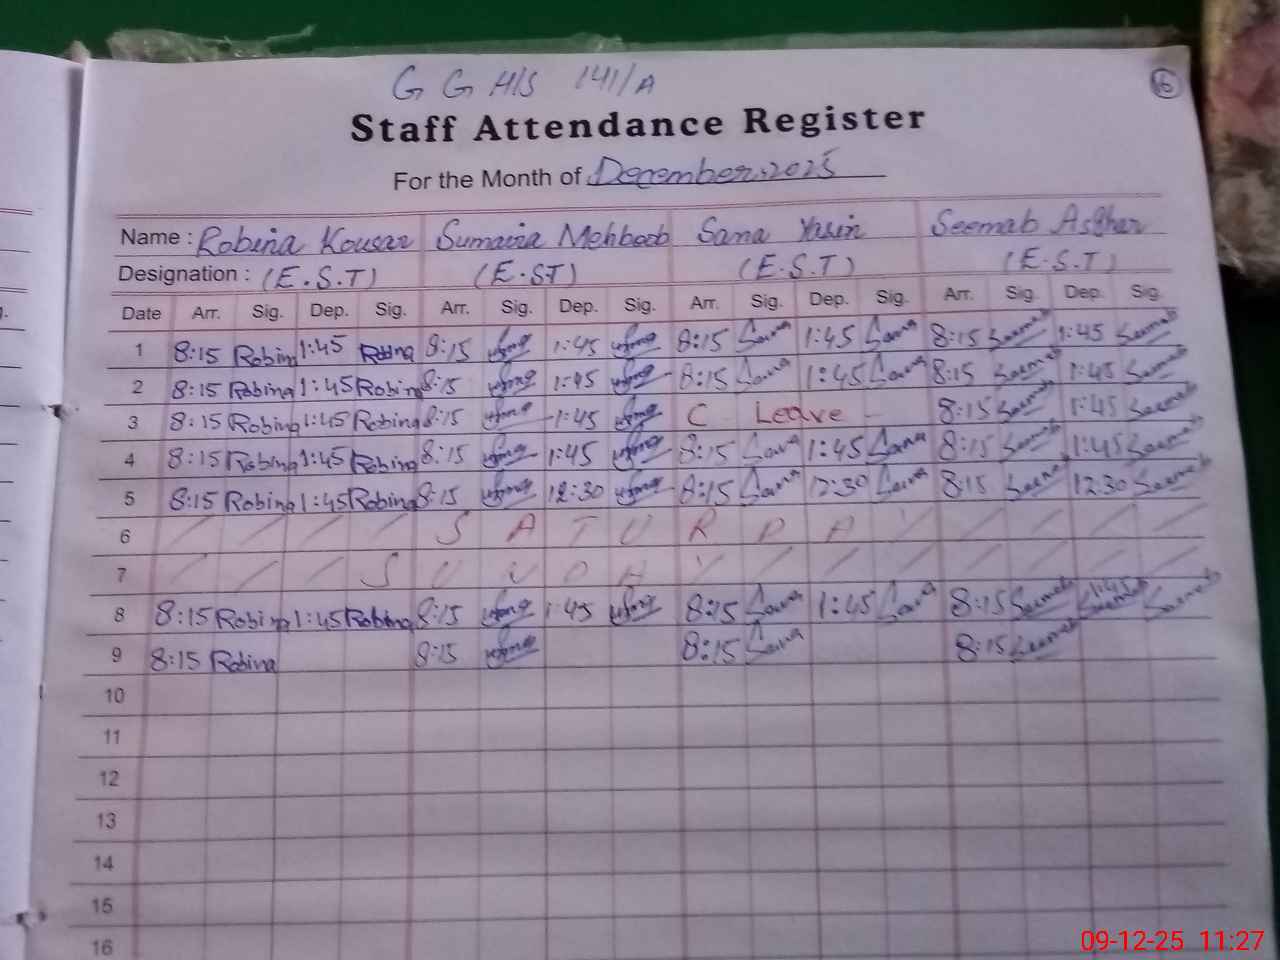 G G H/S 141/A
16
Staff Attendance Register
For the Month of December, 2025
Name : Robina Kousar Sumaira Mehboob Sana Yasin Seemab Asghar
Designation : (E.S.T) (E.S.T) (E.S.T) (E.S.T)
Date Arr. Sig. Dep. Sig. Arr. Sig. Dep. Sig. Arr. Sig. Dep. Sig. Arr. Sig. Dep. Sig.
1 8:15 Robina 1:45 Robina 8:15 1:45 8:15 Sana 1:45 Sana 8:15 Seemab 1:45 Seemab
2 8:15 Robina 1:45 Robina 8:15 1:45 8:15 Sana 1:45 Sana 8:15 Seemab 1:45 Seemab
3 8:15 Robina 1:45 Robina 8:15 1:45 C Leave 8:15 Seemab 1:45 Seemab
4 8:15 Robina 1:45 Robina 8:15 1:45 8:15 Sana 1:45 Sana 8:15 Seemab 1:45 Seemab
5 8:15 Robina 1:45 Robina 8:15 12:30 8:15 Sana 12:30 Sana 8:15 Seemab 12:30 Seemab
6 S A T U R D A Y
7 S U N D A Y
8 8:15 Robina 1:45 Robina 8:15 1:45 8:15 Sana 1:45 Sana 8:15 Seemab 1:45 Seemab Seemab
9 8:15 Robina 8:15 8:15 Sana 8:15 Seemab
10
11
12
13
14
15
16
09-12-25 11:27